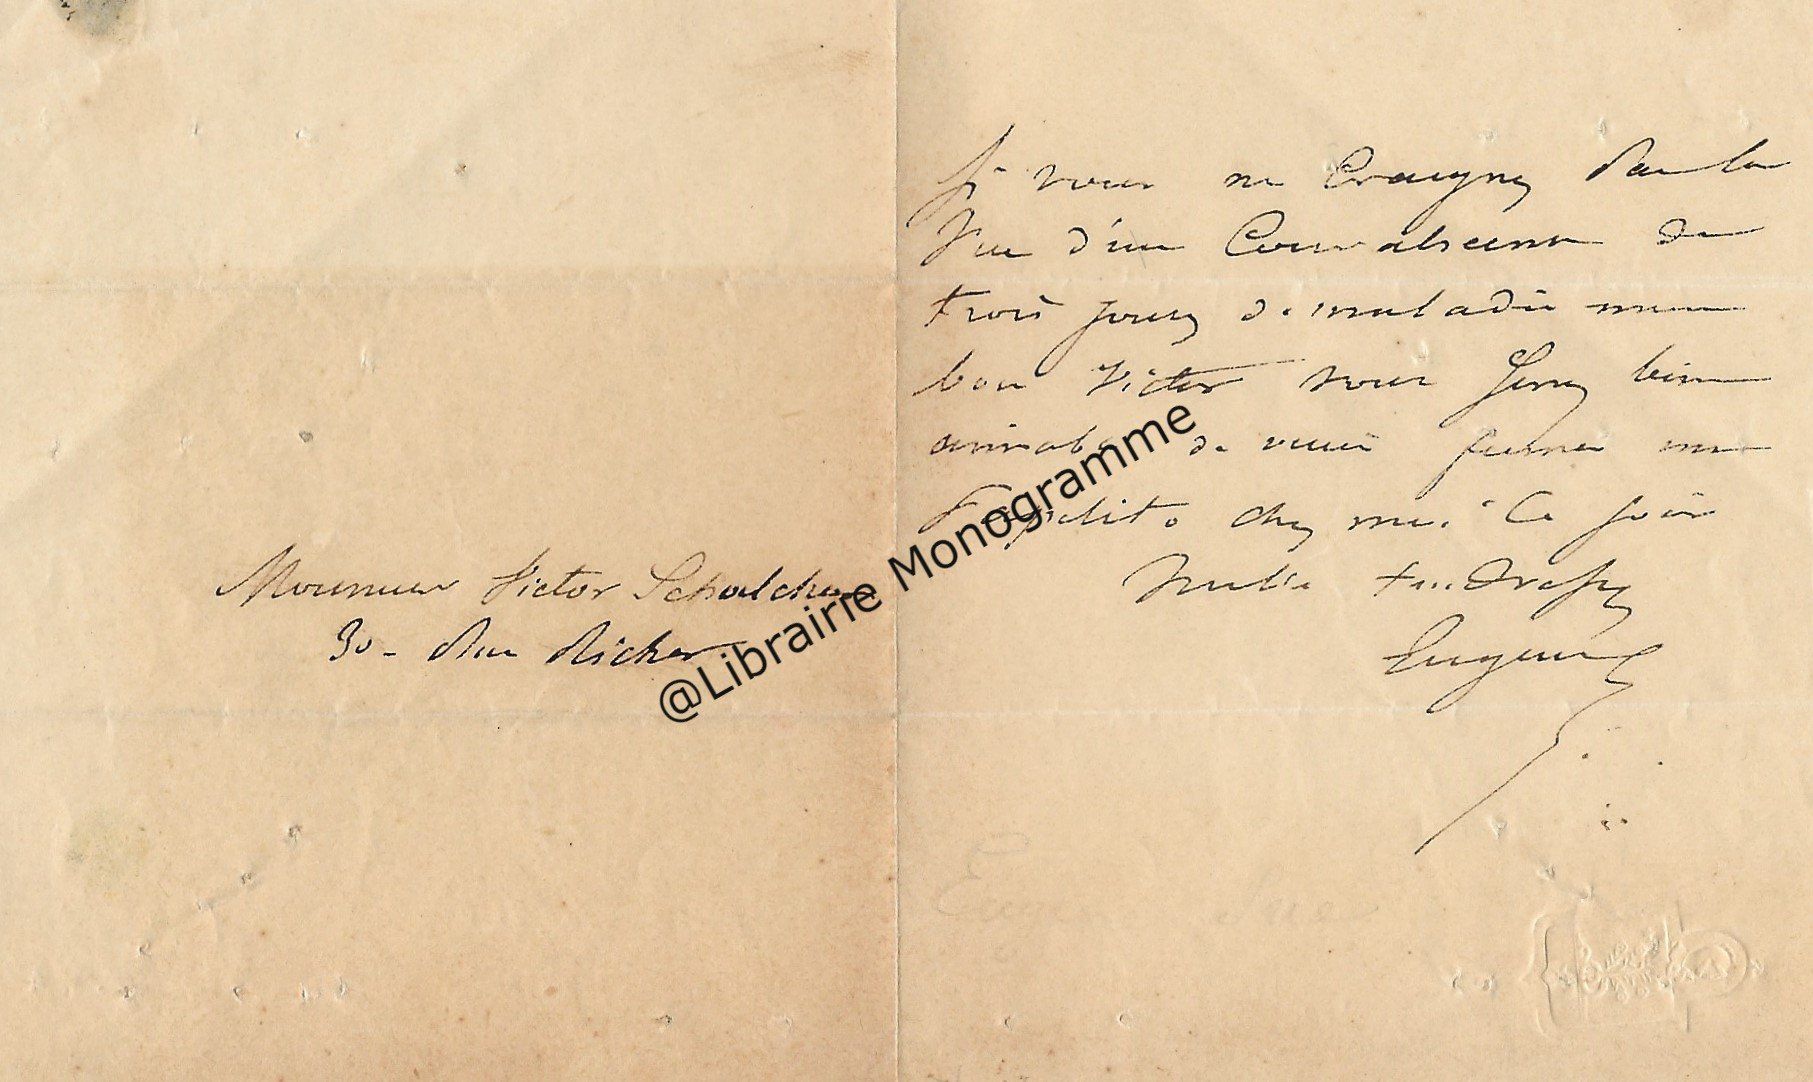 Monsieur Victor Schoelcher
30 - Rue Richer
Si vous ne craignez pas la
Vue d'un Convalescent de
trois jours de maladie mon
bon Victor vous serez bien
aimable de venir fumer un
chez moi Ce soir
Mille tendresses
Eugene
Eugene Sue
@Librairie Monogramme